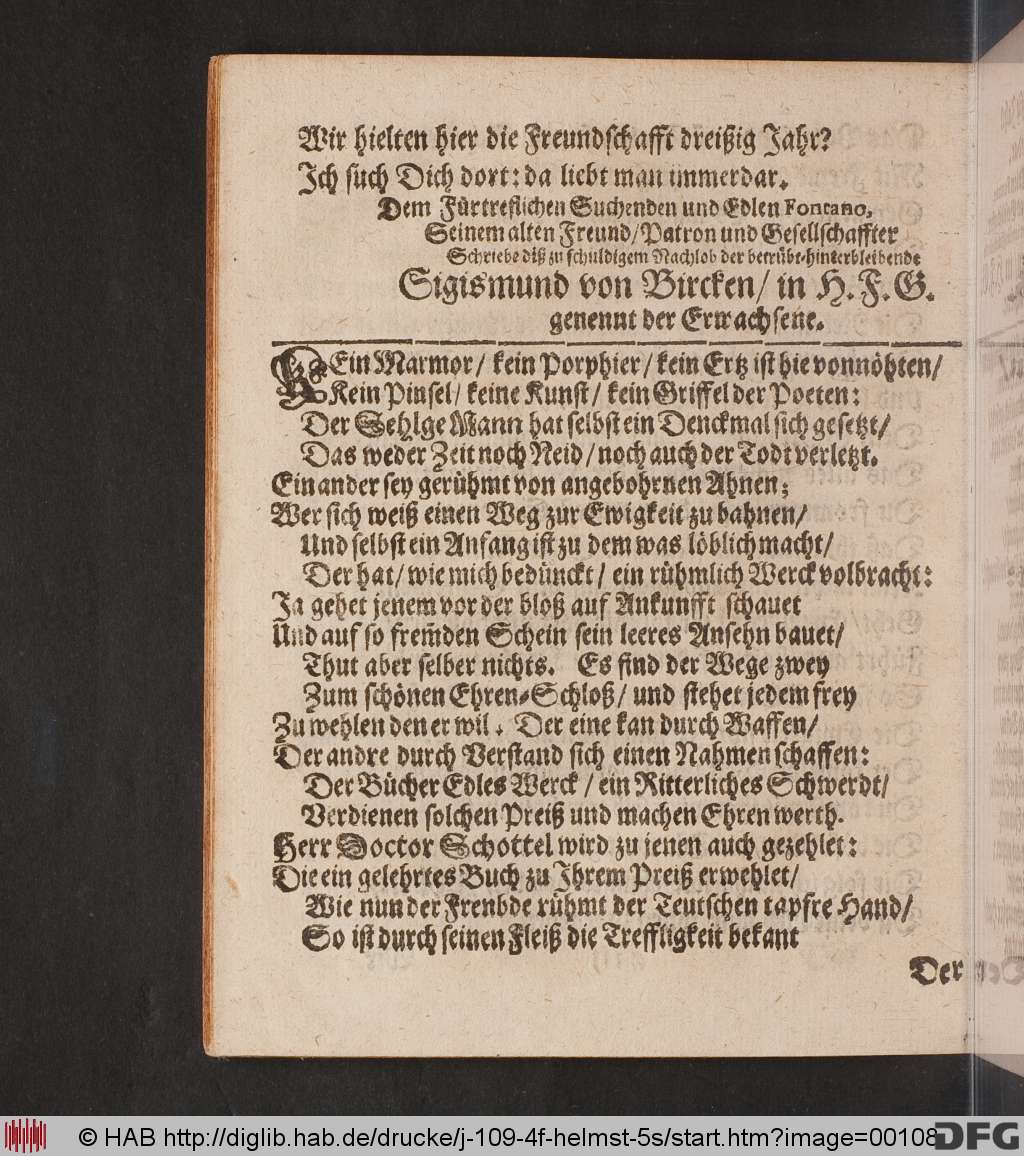 Wir hielten hier die Freundschafft dreißig Jahr?
Ich such Dich dort: da liebt man immerdar.
Dem Fürtreflichen Suchenden und Edlen Fontano,
Seinem alten Freund/ Patron und Gesellschaffter
Schriebe diß zu schuldigem Nachlob der betrübt-hinterbleibende
Sigismund von Bircken/ in H. F. G.
genennt der Erwachsene.
KEin Marmor/ kein Porphier/ kein Ertz ist hie vonnöhten/
Kein Pinsel/ keine Kunst/ kein Griffel der Poeten:
Der Sehlge Mann hat selbst ein Denckmal sich gesetzt/
Das weder Zeit noch Neid/ noch auch der Todt verletzt.
Ein ander sey gerühmt von angebohrnen Ahnen;
Wer sich weiß einen Weg zur Ewigkeit zu bahnen/
Und selbst ein Anfang ist zu dem was löblich macht/
Der hat/ wie mich bedünckt/ ein rühmlich Werck volbracht:
Ja gehet jenem vor der bloß auf Ankunfft schauet
Und auf so frem̃den Schein sein leeres Ansehn bauet/
Thut aber selber nichts. Es sind der Wege zwey
Zum schönen Ehren-Schloß/ und stehet jedem frey
Zu wehlen den er wil. Der eine kan durch Waffen/
Der andre durch Verstand sich einen Nahmen schaffen:
Der Bücher Edles Werck/ ein Ritterliches Schwerdt/
Verdienen solchen Preiß und machen Ehren werth.
Herr Doctor Schottel wird zu jenen auch gezehlet:
Die ein gelehrtes Buch zu Ihrem Preiß erwehlet/
Wie nun der Frenbde rühmt der Teutschen tapfre Hand/
So ist durch seinen Fleiß die Treffligkeit bekant
Der
© HAB http://diglib.hab.de/drucke/j-109-4f-helmst-5s/start.htm?image=00108
DFG